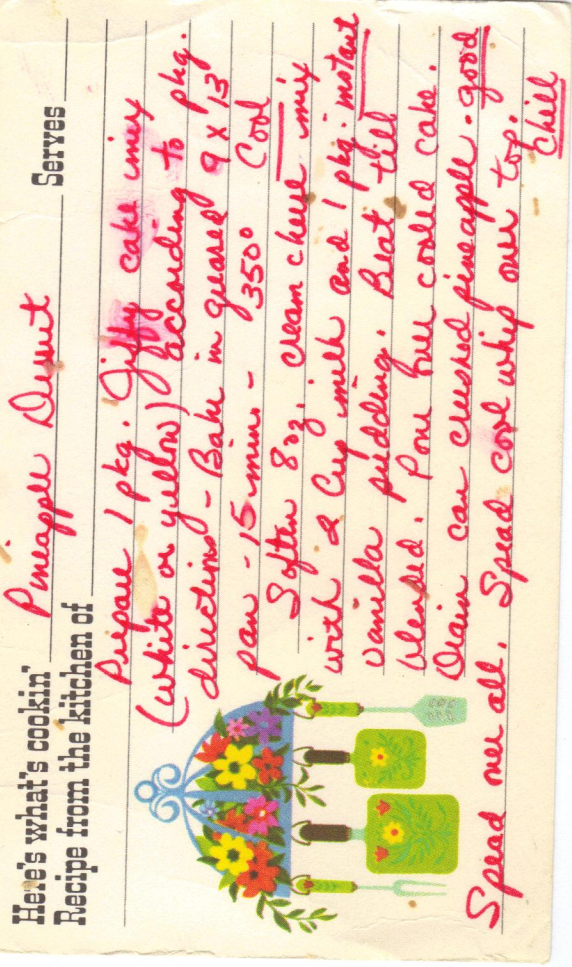 Here's what's cookin' Pineapple Dessert Serves
Recipe from the kitchen of
Prepare 1 pkg. Jiffy cake mix
(white or yellow) according to pkg.
directions - Bake in greased 9 x 13
pan - 15 mins - 350° Cool
Soften 8 oz. cream cheese mix
with 2 Cup milk and 1 pkg. instant
vanilla pudding. Beat till
blended. Pour over cooled cake.
Drain can crushed pineapple. good
Spread over all. Spread cool whip over top.
Chill